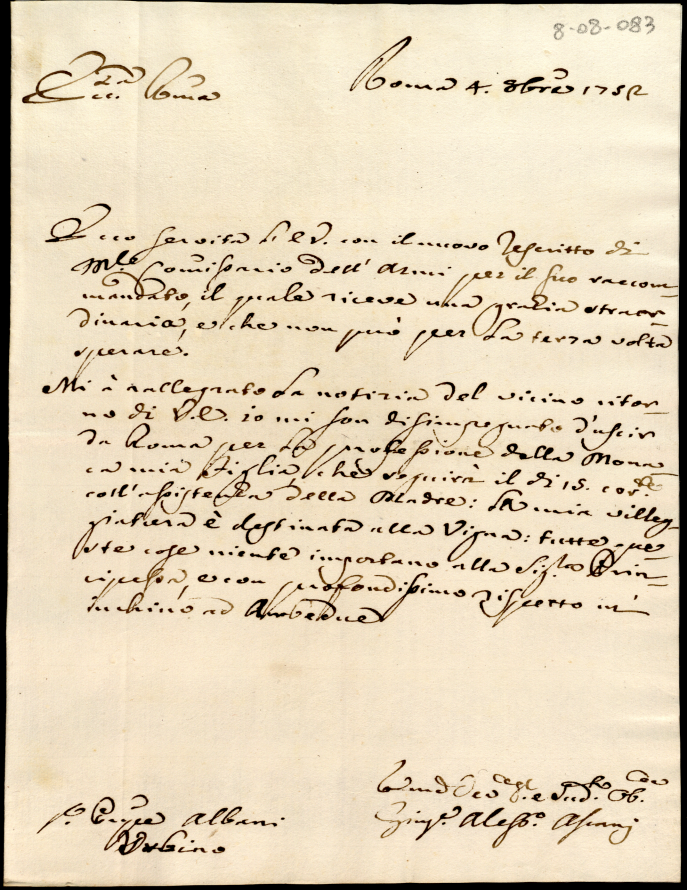 8-08-083
Ecc.za Roma 4. 8bre 1752
Ecco servita l'E.V. con il nuovo Rescritto di
Mr. Comissario dell'Armi per il suo raccom-
mandato, il quale riceve una grazia straor-
dinaria, e che non può per la terza volta
sperare.
Mi à rallegrato la notizia del vicino ritor-
no di V.E. io mi son disimpegnato d'uscir
da Roma per la professione della Mona-
ca mia figlia, che seguirà il di 15. cor.te
coll'assistenza della Madre: la mia villeg-
giatura è destinata alla Vigna: tutte que-
ste cose niente importano alla Sig.ra Prin-
cipessa, e con profondissimo rispetto m'
inchino ad Ambedue
Albani
Urbino